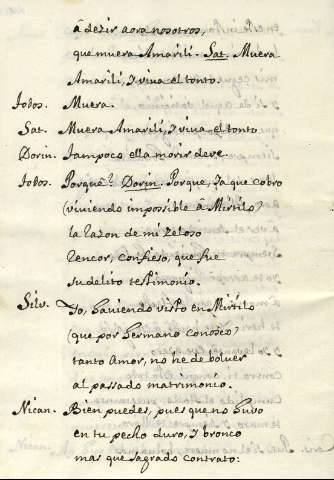 â dezir aora nosotros,
que muera Amarili. Sat. Muera
Amarili, y viva el tonto.
Todos. Muera.
Sat. Muera Amarili, y viva el tonto
Dorin. Tampoco ella morir deve.
Todos. Porquè? Dorin. Porque, ya que cobro
(viviendo impossible â Mirtilo)
la razon de mi zeloso
rencor, confieso, que fue
su delito testimonio.
Silv. Yo, haviendo visto en Mirtilo
(que por hermano conozco)
tanto amor, no hè de bolver
al passado matrimonio.
Nican. Bien puedes, pues que no huvo
en tu pecho duro, y bronco
mas que sagrado contrato: